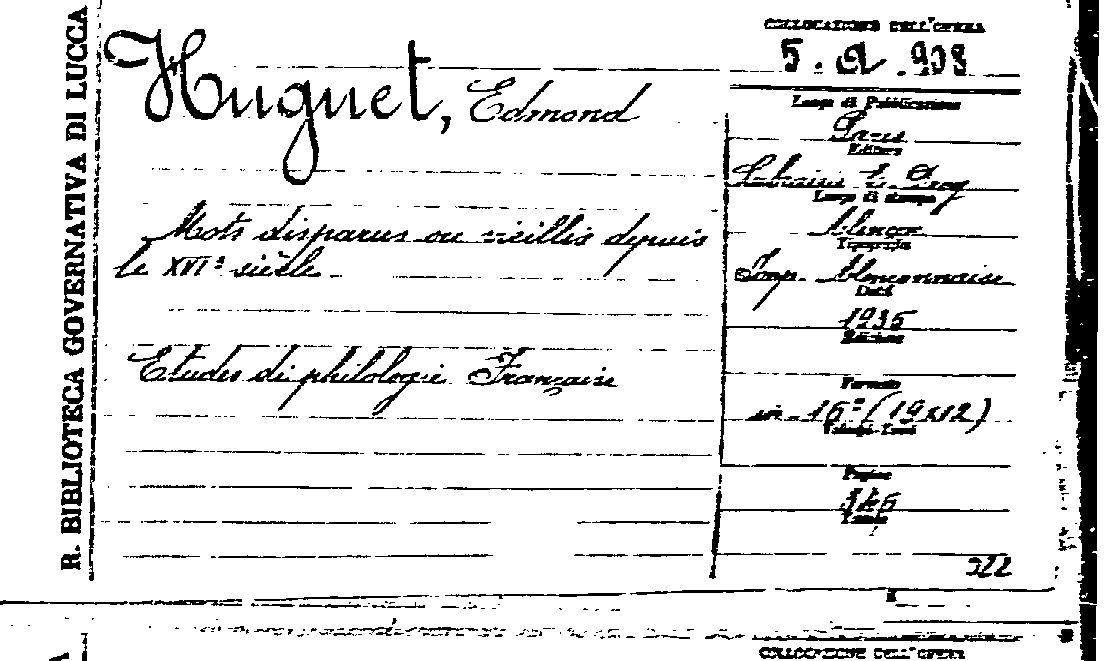 R. BIBLIOTECA GOVERNATIVA DI LUCCA
Huguet, Edmond
Mots disparus ou vieillis depuis
le XVIe siècle
Etudes di philologie Française
COLLOCAZIONE DELL'OPERA
5. a. 908
Luogo di Pubblicazione
Paris
Editore
Librairie E. Droz
Luogo di stampa
Alençon
Tipografia
Imp. Alençonnaise
Data
1935
Edizione
Formato
in-16º (19x12)
Pagine
346
322
COLLOCAZIONE DELL'OPERA